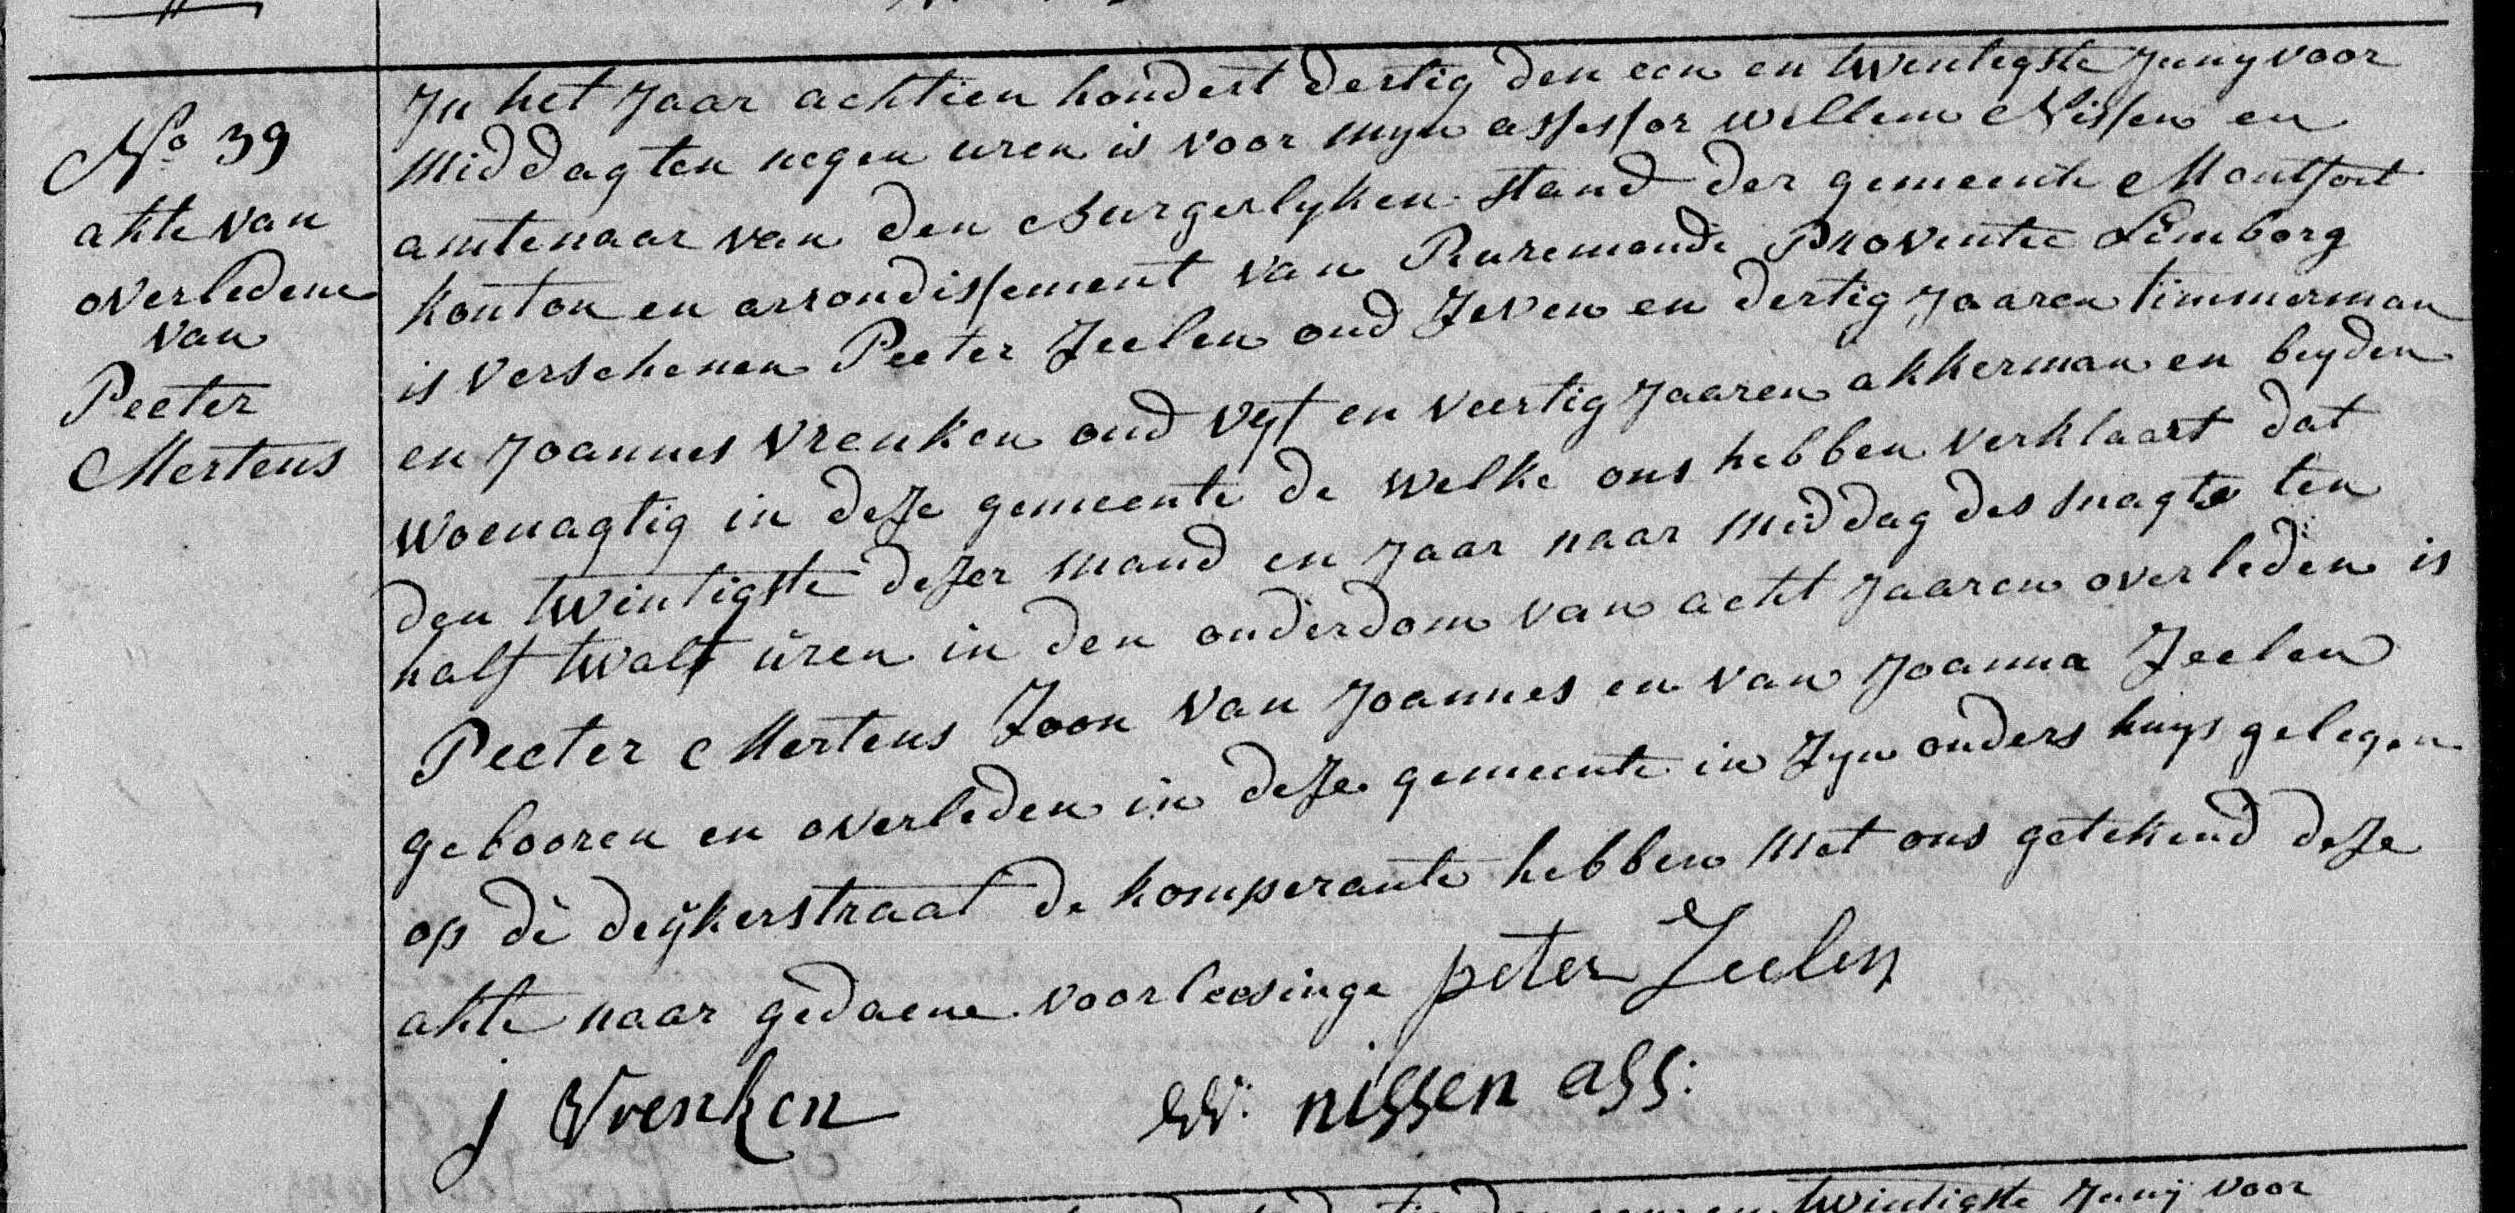 No 39
akte van
overledene
van
Peeter
Mertens
In het Jaar achtien hondert dertig den een en twintigste Juny voor
middag ten negen uren is voor myn assessor willem Nissen en
amtenaar van den Burgerlyken stand der gemeente Montfort
konton en arrondissement van Ruremonde Proventie Limborg
is verschenen Peeter Zeelen oud Zeven en dertig Jaaren timmerman
en Joannes Vrenken oud vyf en veertig Jaaren akkerman en beyden
woenagtig in deze gemeente de welke ons hebben verklaart dat
den twintigste dezer mand en Jaar naar middag des nagts ten
half twalf uren in den ouderdom van acht Jaaren overleden is
Peeter Mertens Zoon van Joannes en van Joanna Zeelen
gebooren en overleden in deze gemeente in Zyn ouders huys gelegen
op de deijkerstraat de komperante hebben met ons getekend deze
akte naar gedaene voorleesinge peter Zeelen
j Vrenken W. nissen ass:
twintigste Junij voor